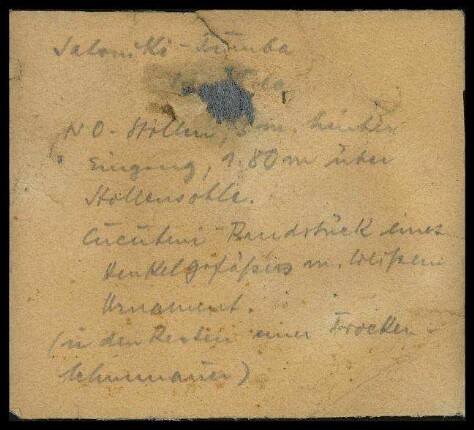 Saloniki-Tumba
NO-Stollen, 3 m. hinter
Eingang, 1.80 m über
Stollensohle.
Cucuteni Randstück eines
Henkelgefässes m. weißem
Ornament.
(in den Resten einer Trocken-
lehmmauer)